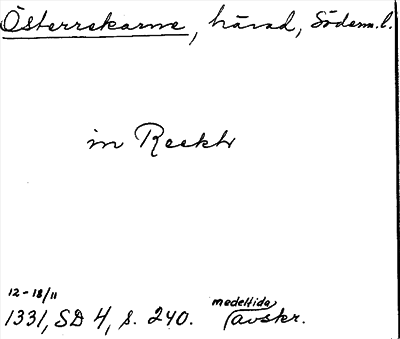 Österrekarne, härad, Söderm.l.
in Reektr
12-18/11 medeltida
1331, SD 4, s. 240. avskr.